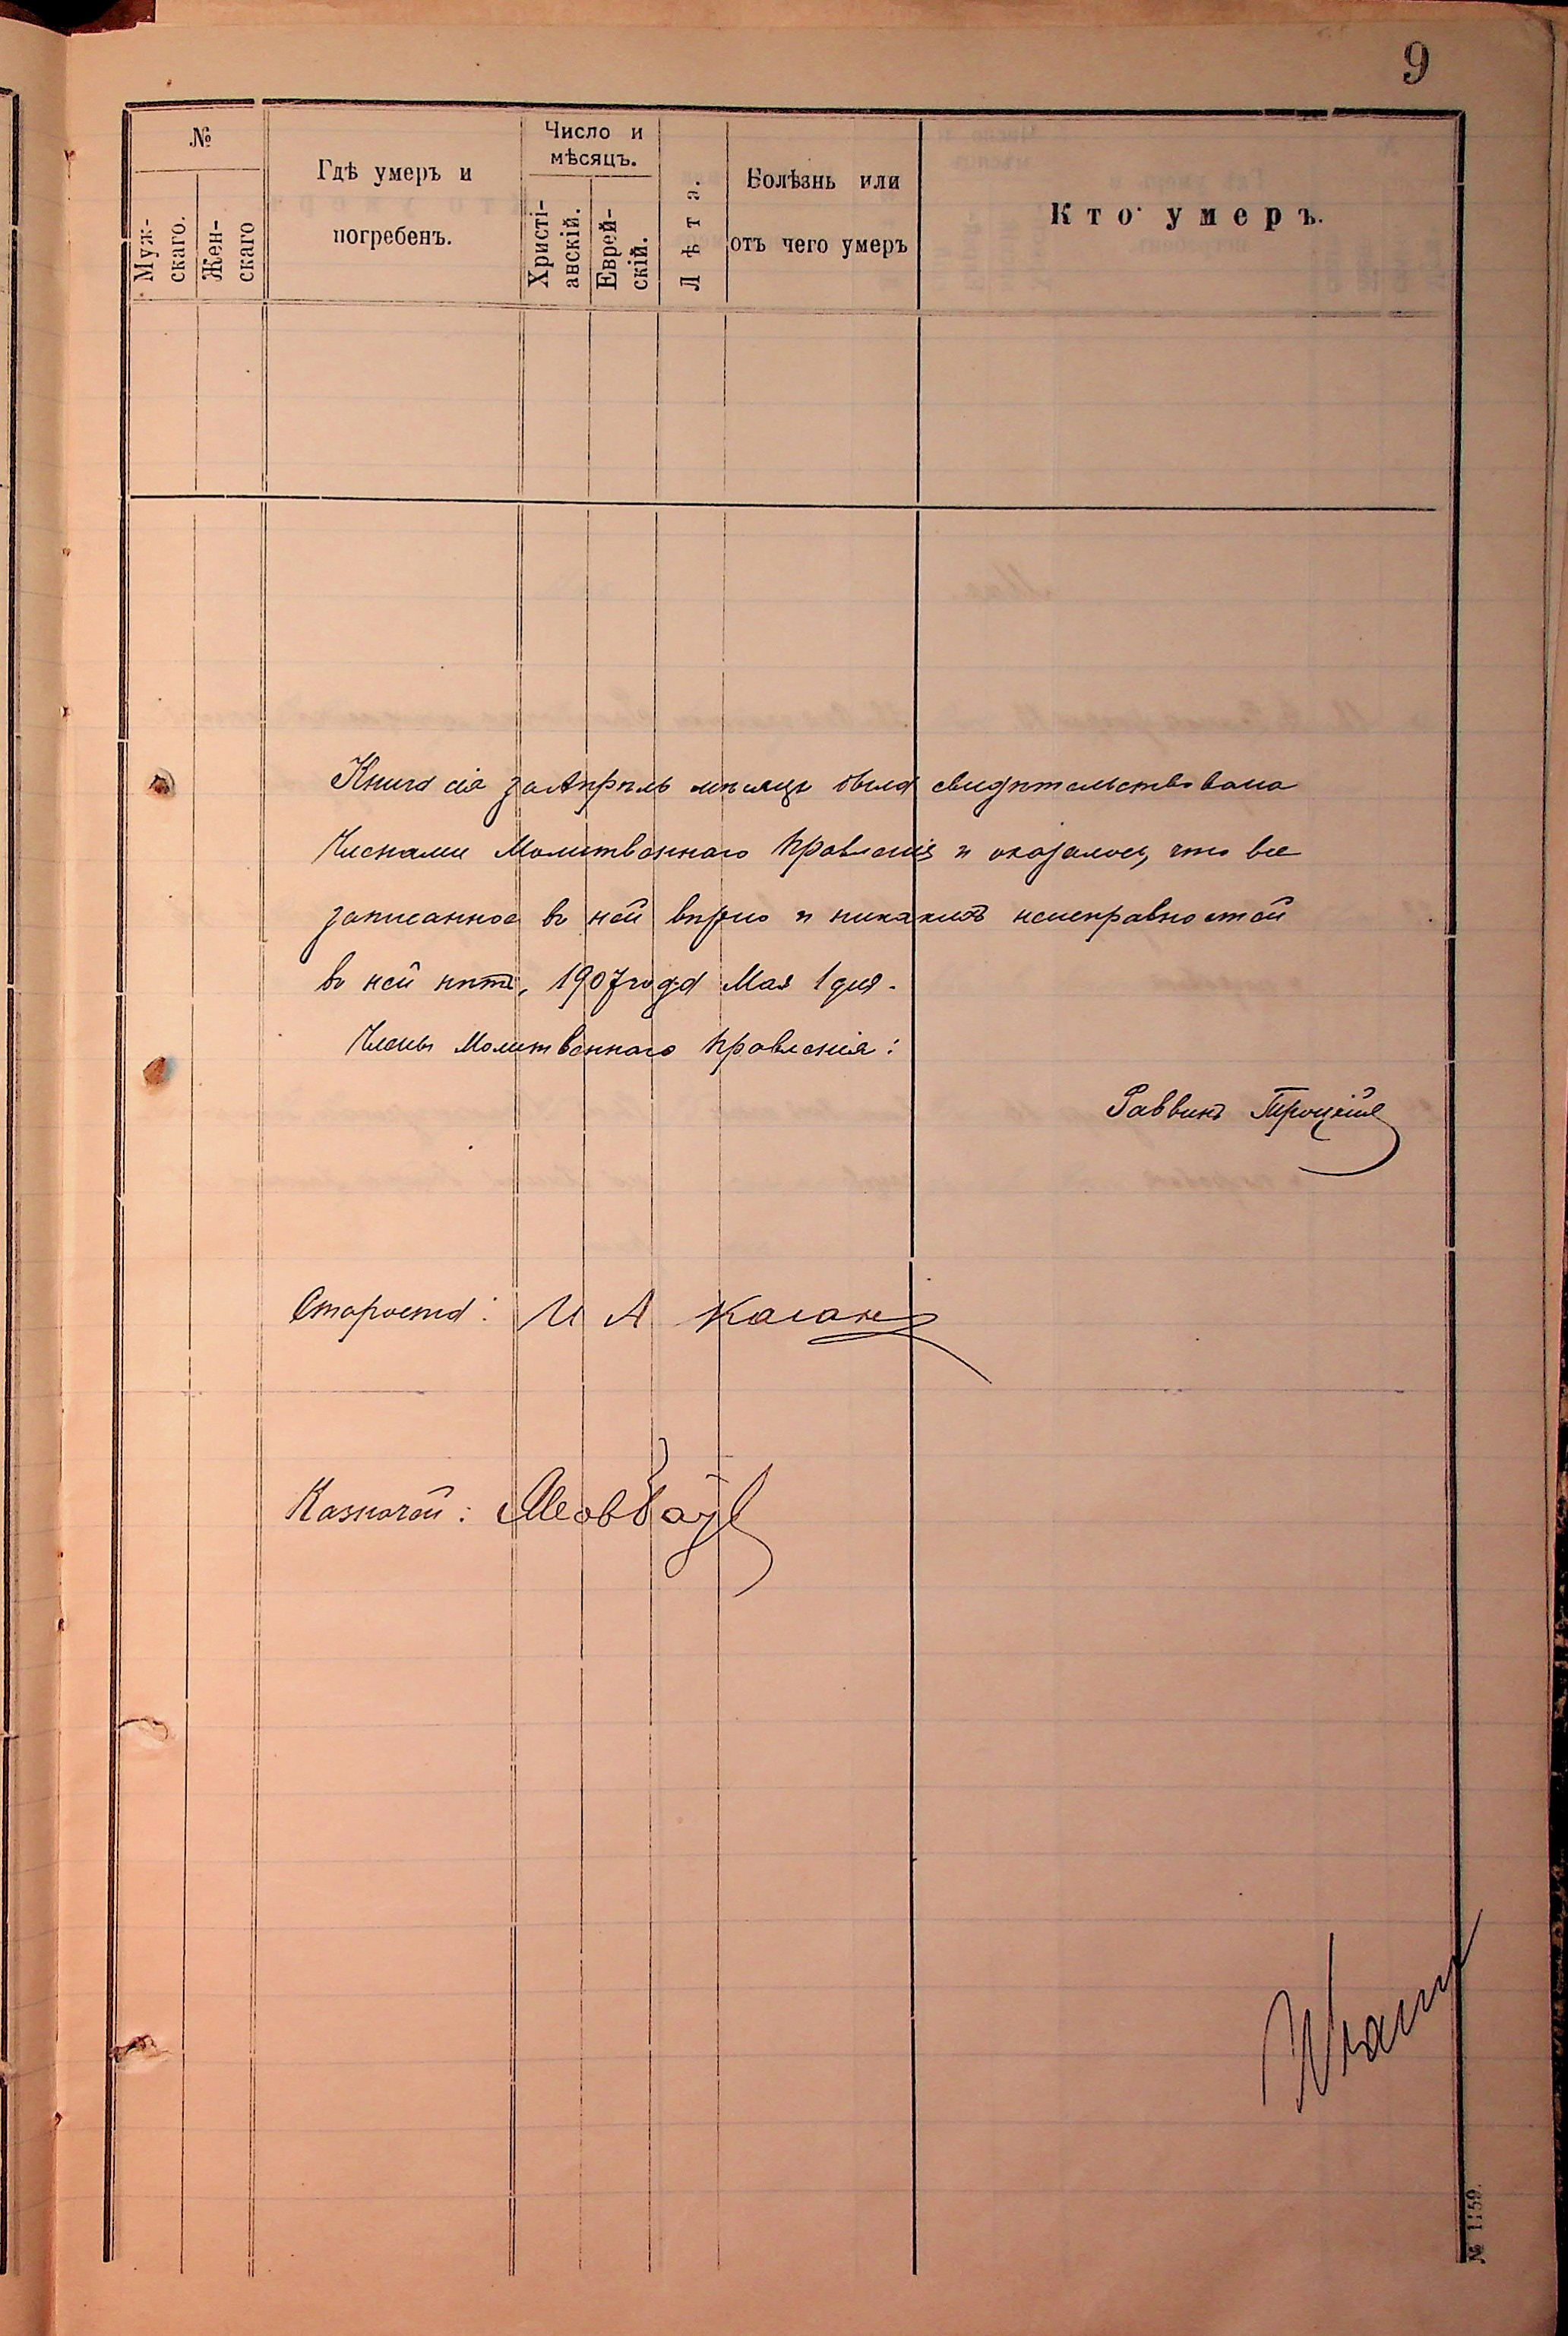 9
№
Муж-
скаго.
Жен-
скаго
Гдѣ умеръ и
погребенъ.
Число и
мѣсяцъ.
Христі-
анскій.
Еврей-
скій.
Лѣта.
Болѣзнь или
отъ чего умеръ
Кто умеръ.
Книга сія за Апрѣль мѣсяцъ была свидѣтельствована
Членами Молитвеннаго Правленія и оказалось, что все
записанное въ ней вѣрно и никакихъ неисправностей
въ ней нѣтъ, 1907 года Мая 1 дня.
Члены Молитвеннаго Правленія:
Раввинъ Троцкій
Староста: И А Каганъ
Казначей:
№ 1159.